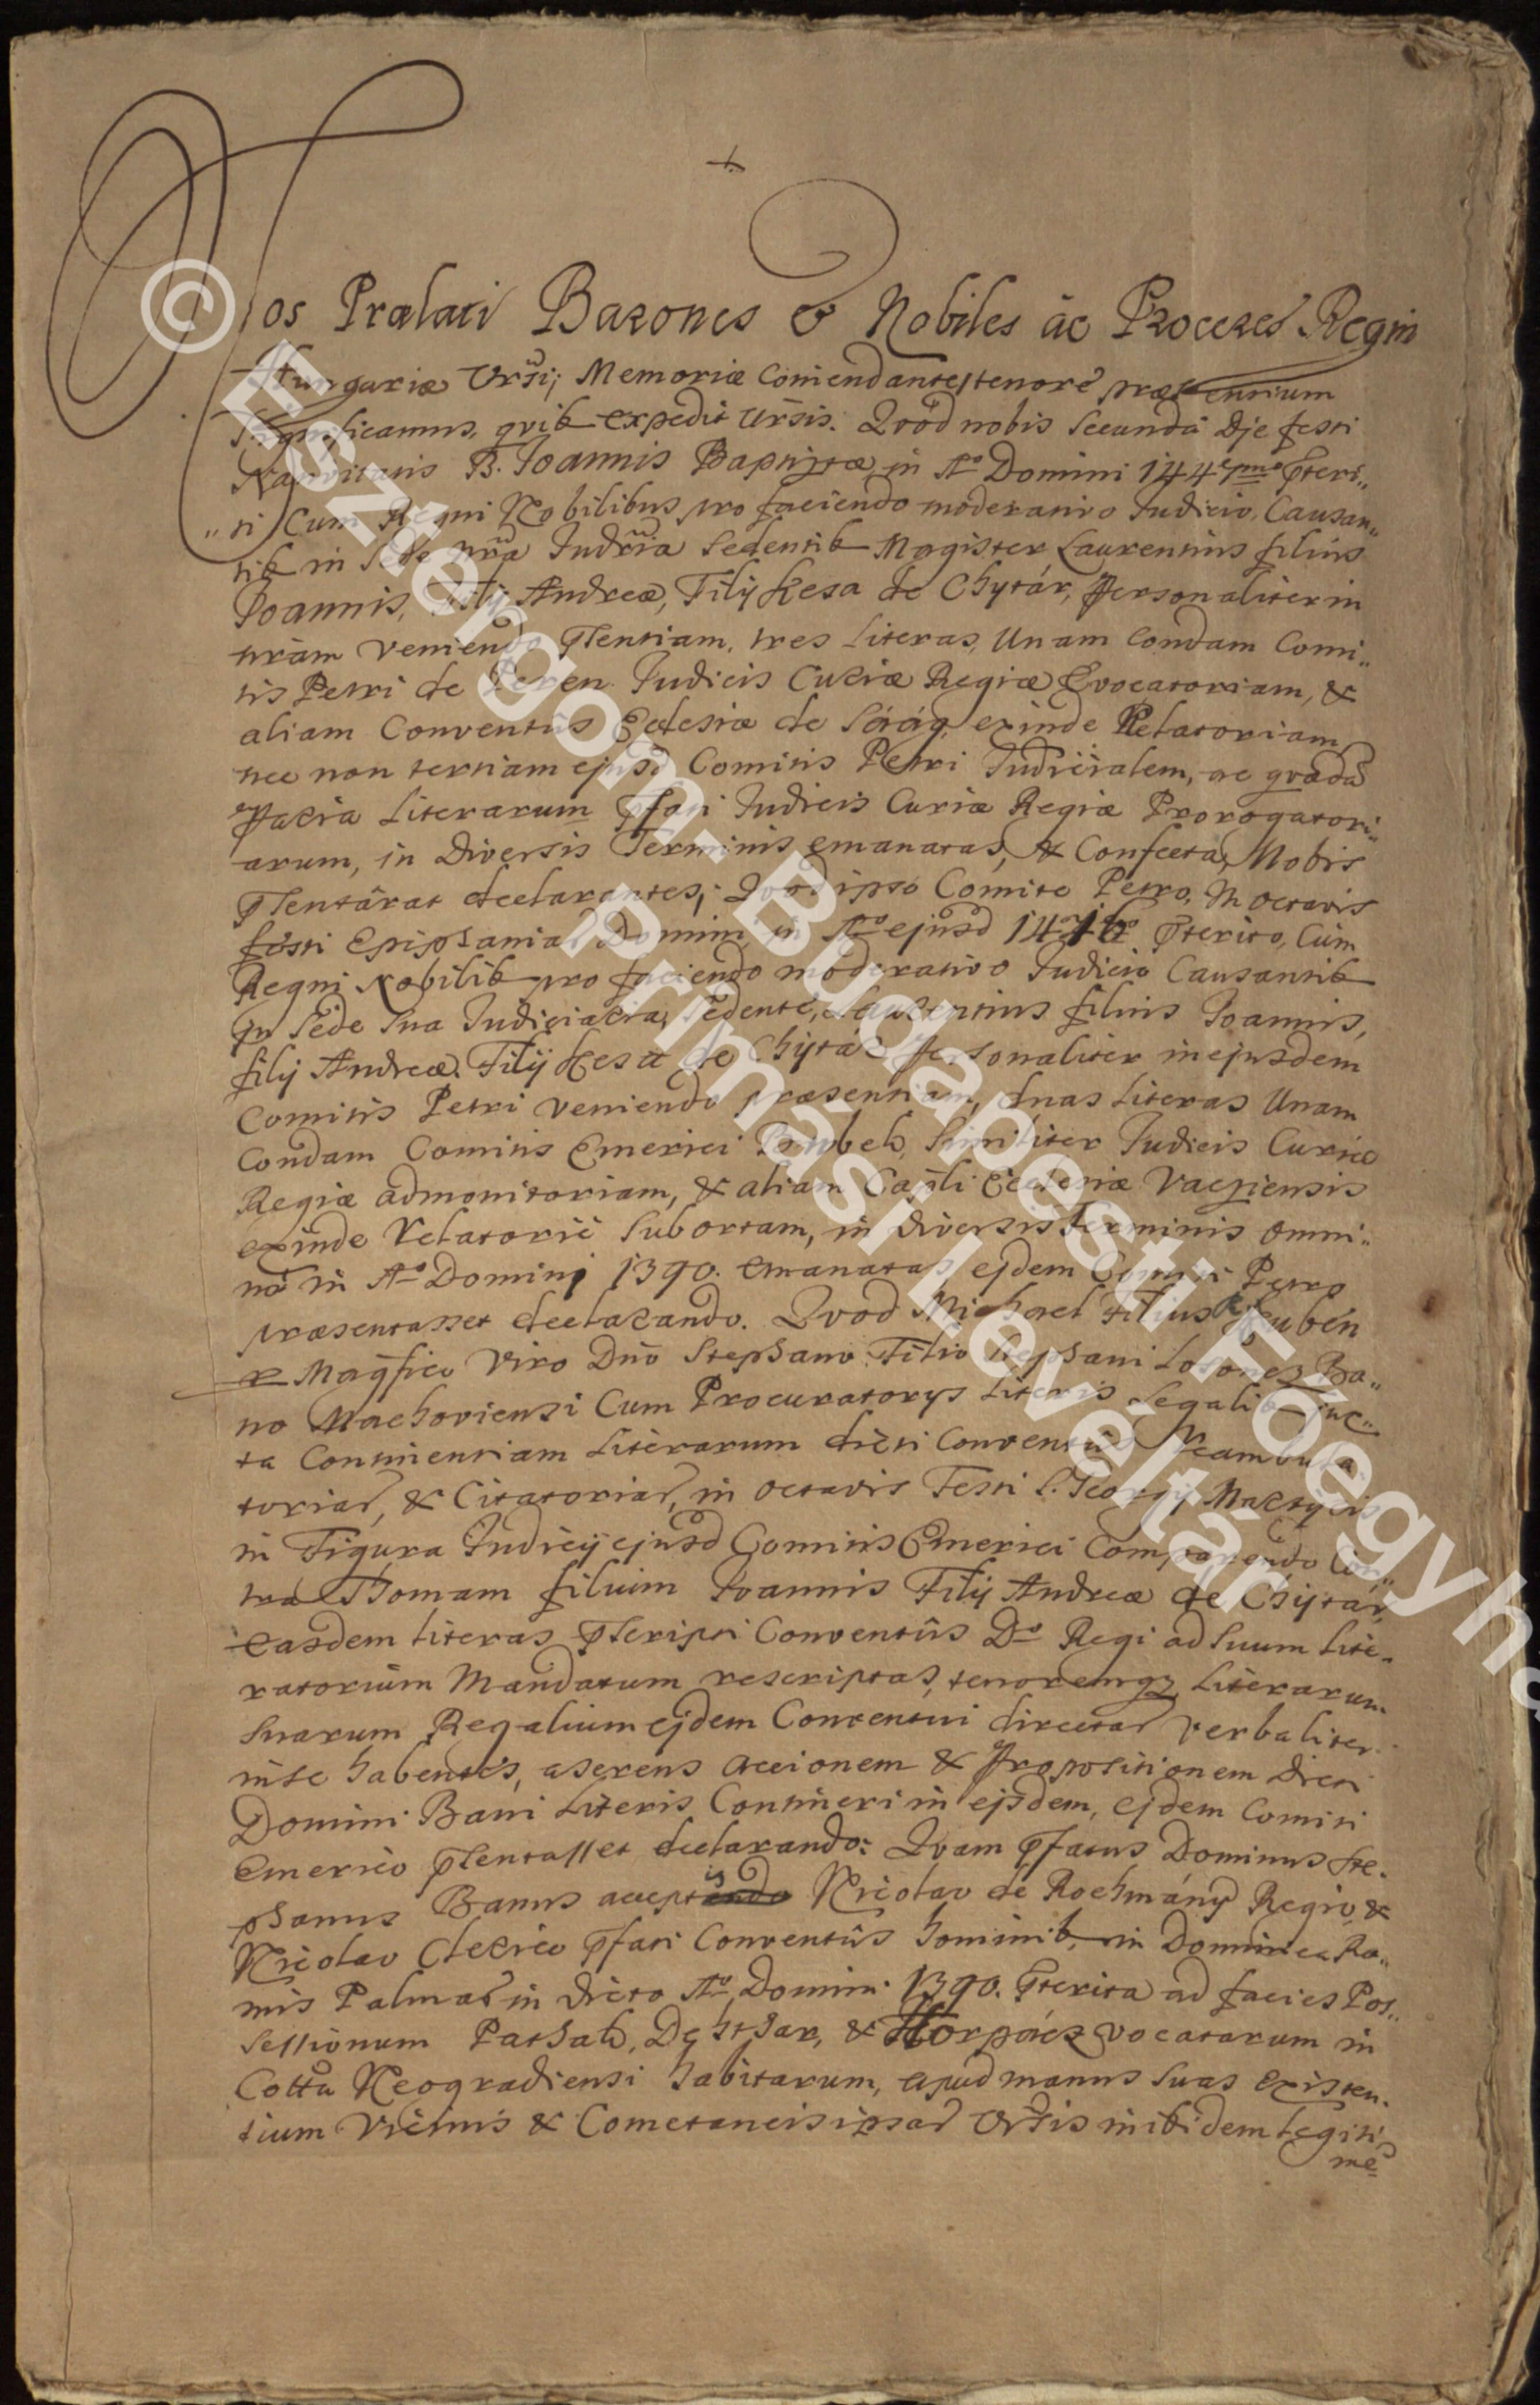 Nos Prælati Barones & Nobiles ac Proceres Regni
Hungariæ Vrsi; Memoriæ Comendantes tenore præsentium
Significamus, qvib expedit Ursis. Qvod nobis Secunda Die festi
Nativitatis B. Joannis Baptistæ in Ao Domini
ti Cum Regni Nobilibus pro faciendo moderativo Judicio, Causan„
tib in Sede nra Judria Sedentib Magister Laurentius filius
Joannis, filij Andreæ, Filij kesa de Chytár, Personaliter in
nram veniendo pšentiam, tres Literas, Unam Condam Comi„
tis Petri de Peren Judicis Curiæ Regiæ Evocatoriam, &
aliam Conventûs Ecclesiæ de Ságh exinde Relatoriam
nec non tertiam ejusd Comitis Petri Judicialem, ac qvædã
paria Literarum pfati Judicis Curiæ Regiæ Prorogatori„
arum, in Diversis Terminis emanatas, & Confecta, Nobis
pšentârat declarantes; Qvod ipso Comite Petro, In octavis
festi Epiphaniar Domini, in Ao ejusd pterito, Cùm
Regni Nobilib pro faciendo moderativo Judicio Causantib
in Sede Sua Judiciaria, Sedente, Laurentius filius Joannis,
filij Andreæ. Filij kesa de Chytár personaliter in ejusdem
Comitis Petri veniendo præsentiam, duas Literas Unam
Condam Comitis Emerici Bubek, Similiter Judicis Curiæ
Regiæ admonitoriam, & aliam Capli Ecclesiæ Vacziensis
exinde Relatorie Subortam, in diversis Terminis omni„
no in Ao Domini 1390. emanatas, ejdem Comiti Petro
præsentasset declarando. Qvod Michael Filius Ruben
Magfico Viro Dno Stephano Filio Stephani Losoncz Ba„
no Machoviensi Cum Procuratorys Literis Legalib jux„
ta Continentiam Literarum dicti Conventus Reambula„
toriar, & Citatoriar, in octavis Festi S. Georgij Martyris
in Figura Judicij ejusd Comitis Emerici Comparendo Con„
tra Thomam filium Joannis Filij Andreæ de Chytár,
easdem literas pscripti Conventûs Do Regi ad Suum Lite„
ratorium Mandatum rescriptas, tenoremq; Literarum
Suarum Regalium ejdem Conventui directar verbaliter
in se habentes, aserens accionem & propositionem Dicti
Domini Bani Literis Contineri in ejsdem, ejdem Comiti
Emerico pšentasset declarando: Qvam pfatus Dominus Ste„
phanus Banus acceptis Nicolao de Rochmány Regio, &
Nicolao Clerico pfati Conventûs hominib, in Dominica Ra„
mis Palmar in dicto Ao Domini 1390. pterita ad facies Pos„
sessionum Pathah, Dehthar, & Horpácz vocatarum in
Cottu Neogradiensi habitarum, apud manus Suas existen„
tium Vicinis & Cometaneis ipsar Vrsis inibidem legiti
me
© Esztergom-Budapesti Főegyh
Prímási Levéltár